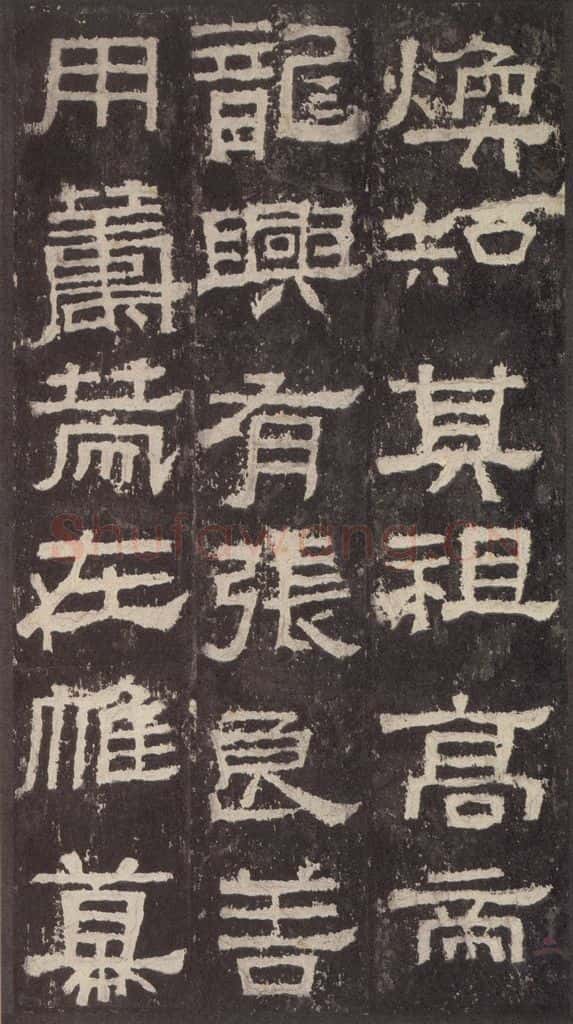 煥知其祖高帝
龍興有張良善
用籌策在帷幕
Shufawang.CN